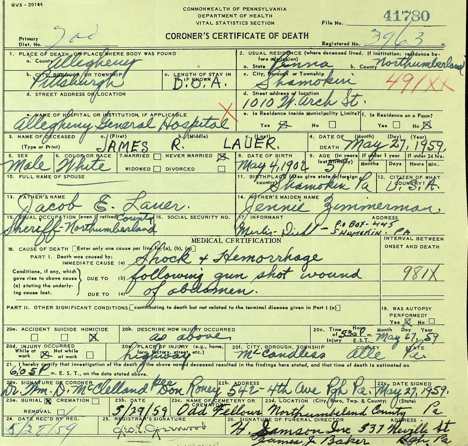 HVS - 20184
COMMONWEALTH OF PENNSYLVANIA
DEPARTMENT OF HEALTH
VITAL STATISTICS SECTION
File No. 41780
CORONER'S CERTIFICATE OF DEATH
Primary Dist. No.
Registered No. 3963
1. PLACE OF DEATH, OR PLACE WHERE BODY WAS FOUND
a. County Allegheny
2. USUAL RESIDENCE (where deceased lived. If institution; residence before admission)
a. State Penna b. County Northumberland
b. CITY, BOROUGH OR TOWNSHIP Pittsburgh
c. LENGTH OF STAY D.O.A.
c. City, Borough or Township Shamokin
491XX
d. STREET ADDRESS OR LOCATION
d. Street address or location
1010 W. Arch St.
e. NAME OF HOSPITAL OR INSTITUTION, IF APPLICABLE
Allegheny General Hospital
e. Is Residence inside Municipality Limits? Yes No
f. Is Residence on a Farm? Yes No
3. NAME OF DECEASED (Type or Print) (First) (Middle) (Last)
JAMES R. LAUER.
4. DATE OF DEATH (Month) (Day) (Year)
MAY 27, 1959.
5. SEX Male
6. COLOR OR RACE White
7. MARRIED NEVER MARRIED
WIDOWED DIVORCED
8. DATE OF BIRTH May 4, 1902
9. AGE (In years last birthday) 57
10. FULL NAME OF SPOUSE
11. BIRTHPLACE Shamokin Pa
12. CITIZEN OF WHAT COUNTRY? U.S.A.
13. FATHER'S NAME
Jacob E. Lauer.
14. MOTHER'S MAIDEN NAME
Jennie Zimmerman.
15. USUAL OCCUPATION
Sheriff-Northumberland County
16. SOCIAL SECURITY NO.
17. INFORMANT ADDRESS
P.O Box-445
SHAMOKIN, PA
MEDICAL CERTIFICATION
INTERVAL BETWEEN ONSET AND DEATH
18. CAUSE OF DEATH Enter only one cause per line for (a), (b), (c)
PART I. Death was caused by:
IMMEDIATE CAUSE (a) Shock & Hemorrhage
Conditions, if any, which gave rise to above cause (a) stating the underlying cause last.
DUE TO (b) following gun shot wound
DUE TO (c) of abdomen.
981X
PART II. OTHER SIGNIFICANT CONDITIONS contributing to death but not related to the terminal disease given in Part I (a)
19. WAS AUTOPSY PERFORMED?
Yes No
20a. ACCIDENT SUICIDE HOMICIDE
20b. DESCRIBE HOW INJURY OCCURRED
as above
20c. Time of injury
May 27, 59
20d. INJURY OCCURRED
While at work Not while at work
20e. PLACE OF INJURY
highway
20f. CITY, BOROUGH, TOWNSHIP COUNTY STATE
McCandless Alle Pa
21. I hereby certify that investigation of the death of the above named deceased resulted in the findings here stated, and that time of death is estimated as
22a. SIGNATURE OF CORONER
Dr. Wm. D. McClelland
22b. ADDRESS
542-4th Ave Pgh Pa.
22c. DATE SIGNED
May 27, 1959.
23a. BURIAL CREMATION REMOVAL
5/29/59
Odd Fellows Northumberland County Pa
24. DATE REC'D BY REG.
5/28/59
25. REGISTRAR'S SIGNATURE
26. SIGNATURE OF FUNERAL DIRECTOR ADDRESS
H. Samson Inc 537 Neville St
James J. Baker Pgh, Pa.